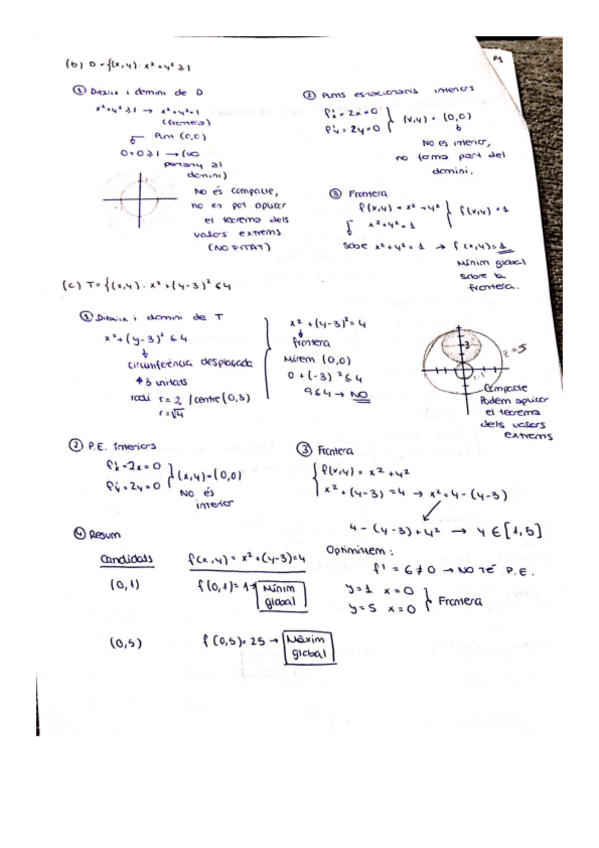 P1
(b) D = {(x,y) · x²+y² ≥ 1
① Dibuix i domini de D
x²+y² ≥ 1 → x²+y²=1
(frontera)
Punt (0,0)
0+0 ≥ 1 → (NO
pertany al
domini)
No és compacte,
no es pot aplicar
el teorema dels
valors extrems.
(NO FITAT)
② Punts estacionaris interiors
f'x = 2x = 0
f'y = 2y = 0 } (x,y) = (0,0)
No es interior,
no forma part del
domini.
③ Frontera
f(x,y) = x² + y²
x²+y² = 1 } f(x,y) = 1
Sobre x²+y² = 1 → f(x,y) = 1
Mínim global
sobre la
frontera.
(c) T = {(x,y) · x² + (y-3)² ≤ 4
① Dibuix i domini de T
x² + (y-3)² ≤ 4
circumferència desplaçada
↑ 3 unitats
radi r = 2 / centre (0,3)
r = √4
x² + (y-3)² = 4
frontera
Mirem (0,0)
0 + (-3)² ≤ 4
9 ≤ 4 → NO
3
z=5
Compacte
Podem aplicar
el teorema
dels valors
extrems
② P.E. Interiors
f'x = 2x = 0
f'y = 2y = 0 } (x,y) = (0,0)
No és
interior
③ Frontera
f(x,y) = x² + y²
x² + (y-3) = 4 → x² = 4 - (y-3)
4 - (y-3) + y² → y ∈ [1,5]
Optimitzem :
f' = 6 ≠ 0 → NO TÉ P.E.
y=1 x=0
y=5 x=0 } Frontera
④ Resum
Candidats
f(x,y) = x² + (y-3) = 4
(0,1)
f(0,1) = 1 → Mínim
global
(0,5)
f(0,5) = 25 → Màxim
global